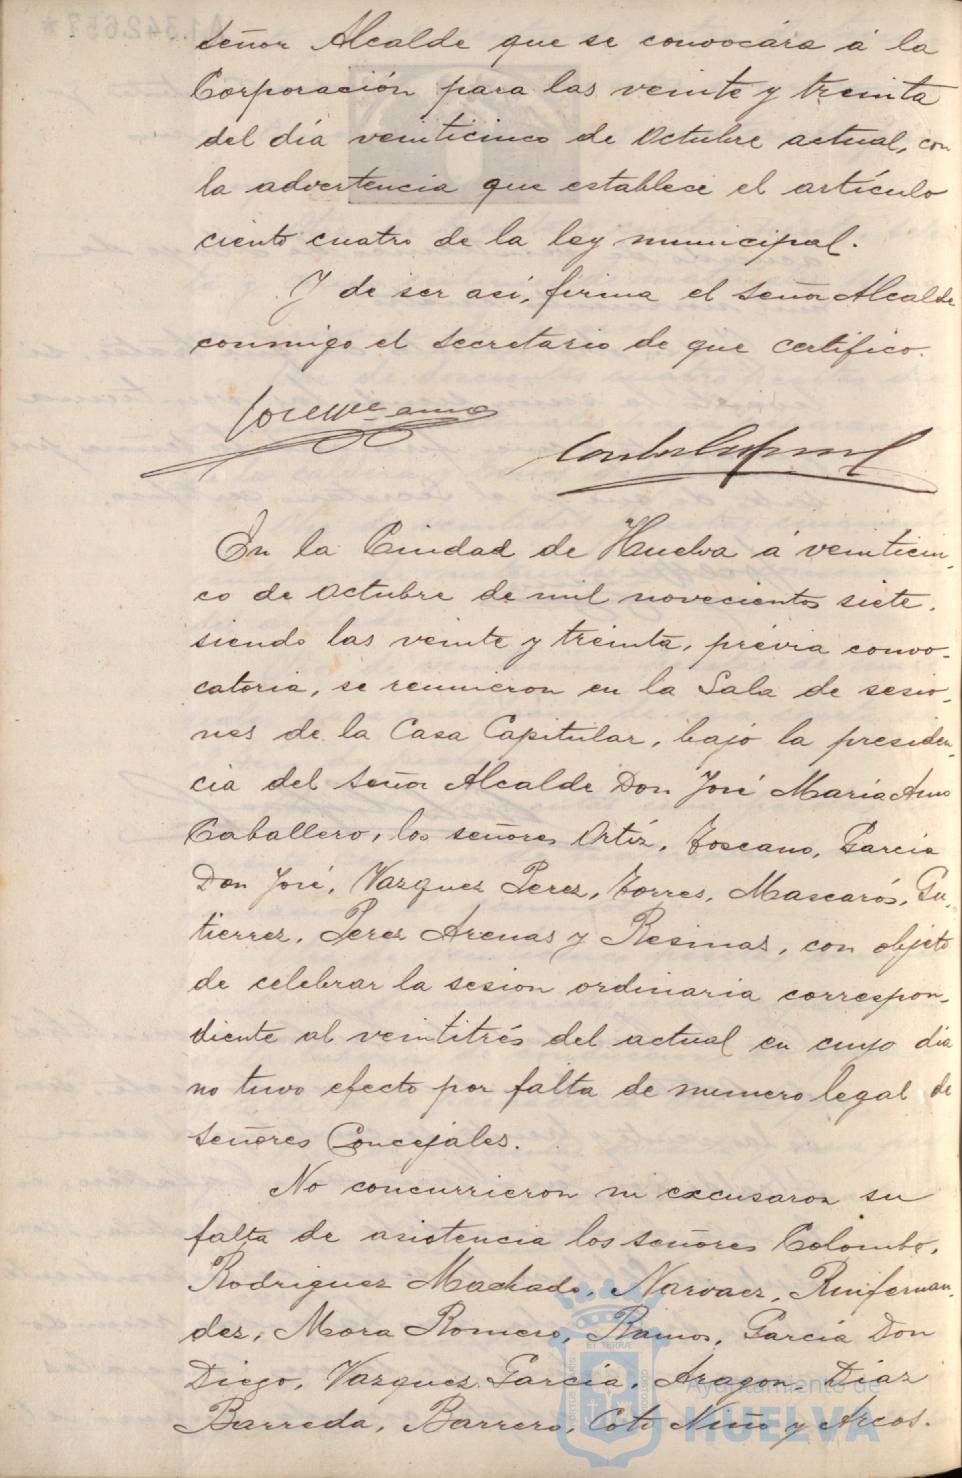 señor Alcalde que se convocára á la
Corporación para las veinte y treinta
del día veinticinco de Octubre actual, con
la advertencia que establece el artículo
ciento cuatro de la ley municipal.
Y de ser así, firma el señor Alcalde
conmigo el Secretario de que certifico.
En la Ciudad de Huelva á veinticin-
co de Octubre de mil novecientos siete,
siendo las veinte y treinta, prévia convo-
catoria, se reunieron en la Sala de sesio-
nes de la Casa Capitular, bajo la presiden-
cia del señor Alcalde Don José María Amo
Caballero, los señores Ortíz, Toscano, García
Don José, Vazquez Perez, Torres, Mascarós, Gu-
tierrez, Perez Arenas y Resinas, con objeto
de celebrar la sesion ordinaria correspon-
diente al veintitrés del actual en cuyo día
no tuvo efecto por falta de numero legal de
señores Concejales.
No concurrieron ni excusaron su
falta de asistencia los señores Colombo,
Rodriguez Machado, Narvaez, Ruifernan-
dez, Mora Romero, Ramos, García Don
Diego, Vazquez García, Aragon, Diaz
Barreda, Barrero, Coto Niño y Arcos.
Ayuntamiento de
HUELVA